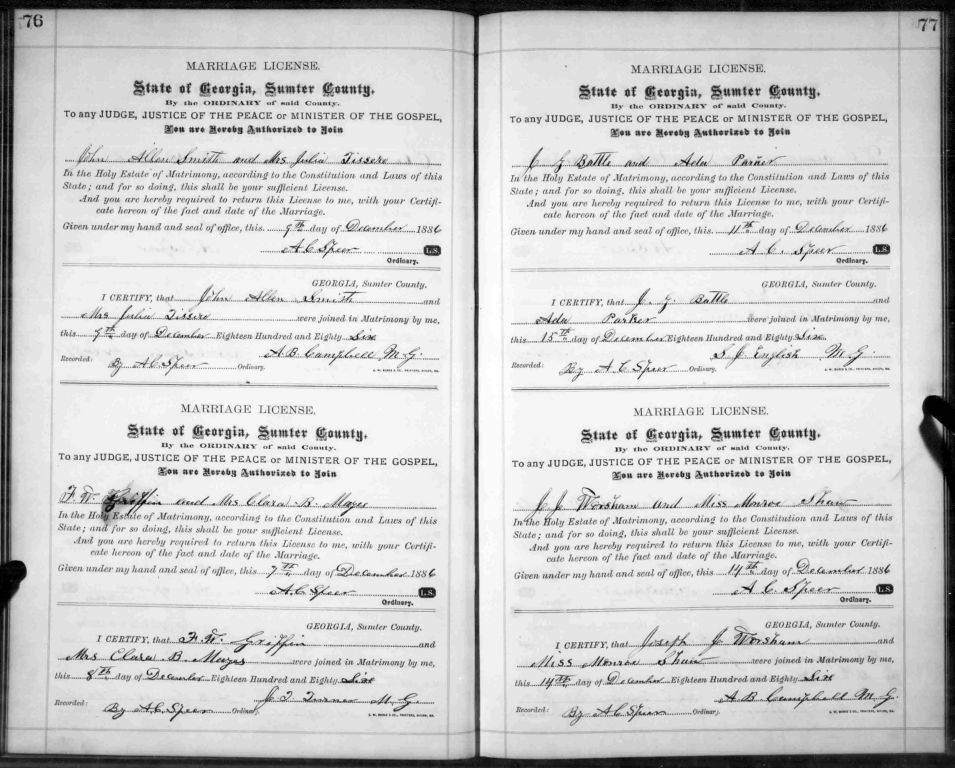 76
MARRIAGE LICENSE.
State of Georgia, Sumter County.
By the ORDINARY of said County.
To any JUDGE, JUSTICE OF THE PEACE or MINISTER OF THE GOSPEL,
You are Hereby Authorized to Join
John Allen Smith and Mrs Julia Tissero
In the Holy Estate of Matrimony, according to the Constitution and Laws of this
State; and for so doing, this shall be your sufficient License.
And you are hereby required to return this License to me, with your Certifi-
cate hereon of the fact and date of the Marriage.
Given under my hand and seal of office, this 9th day of December 1886
A C Speer L.S.
Ordinary.
GEORGIA, Sumter County.
I CERTIFY, that John Allen Smith and
Mrs Julia Tissero were joined in Matrimony by me,
this 9th day of December Eighteen Hundred and Eighty Six
A B Campbell M.G.
Recorded: By A C Speer Ordinary.
MARRIAGE LICENSE.
State of Georgia, Sumter County.
By the ORDINARY of said County.
To any JUDGE, JUSTICE OF THE PEACE or MINISTER OF THE GOSPEL,
You are Hereby Authorized to Join
F. W. Griffin and Mrs Clara B. Mayes
In the Holy Estate of Matrimony, according to the Constitution and Laws of this
State; and for so doing, this shall be your sufficient License.
And you are hereby required to return this License to me, with your Certifi-
cate hereon of the fact and date of the Marriage.
Given under my hand and seal of office, this 7th day of December 1886
A C Speer L.S.
Ordinary.
GEORGIA, Sumter County.
I CERTIFY, that F. W. Griffin and
Mrs Clara B Mayes were joined in Matrimony by me,
this 8th day of December Eighteen Hundred and Eighty Six
J T Turner M.G.
Recorded: By A C Speer Ordinary.
77
MARRIAGE LICENSE.
State of Georgia, Sumter County.
By the ORDINARY of said County.
To any JUDGE, JUSTICE OF THE PEACE or MINISTER OF THE GOSPEL,
You are Hereby Authorized to Join
J Battle and Ada Parker
In the Holy Estate of Matrimony, according to the Constitution and Laws of this
State; and for so doing, this shall be your sufficient License.
And you are hereby required to return this License to me, with your Certifi-
cate hereon of the fact and date of the Marriage.
Given under my hand and seal of office, this 11th day of December 1886
A. C. Speer L.S.
Ordinary.
GEORGIA, Sumter County.
I CERTIFY, that J. Battle and
Ada Parker were joined in Matrimony by me,
this 15th day of December Eighteen Hundred and Eighty Six
S J English M.G.
Recorded: By A C Speer Ordinary.
MARRIAGE LICENSE.
State of Georgia, Sumter County.
By the ORDINARY of said County.
To any JUDGE, JUSTICE OF THE PEACE or MINISTER OF THE GOSPEL,
You are Hereby Authorized to Join
J. J. Worsham and Miss Monroe Shaw
In the Holy Estate of Matrimony, according to the Constitution and Laws of this
State; and for so doing, this shall be your sufficient License.
And you are hereby required to return this License to me, with your Certifi-
cate hereon of the fact and date of the Marriage.
Given under my hand and seal of office, this 14th day of December 1886
A C Speer L.S.
Ordinary.
GEORGIA, Sumter County.
I CERTIFY, that Joseph J Worsham and
Miss Monroe Shaw were joined in Matrimony by me,
this 14th day of December Eighteen Hundred and Eighty Six
A B Campbell M.G.
Recorded: By A C Speer Ordinary.